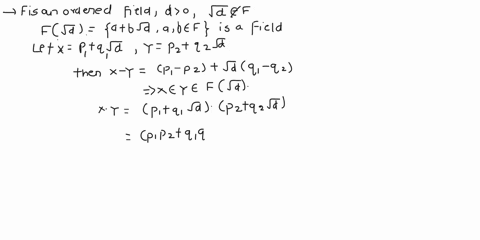 → F is an ordered field, d>0, √d ∉ F
F(√d) = {a+b√d, a,b∈F} is a field
Let x = p₁+q₁√d, Y = p₂+q₂√d
then x-Y = (p₁-p₂) + √d (q₁-q₂)
⇒ x ∈ Y ∈ F(√d).
x·Y = (p₁+q₁√d)·(p₂+q₂√d)
= (p₁p₂+q₁q